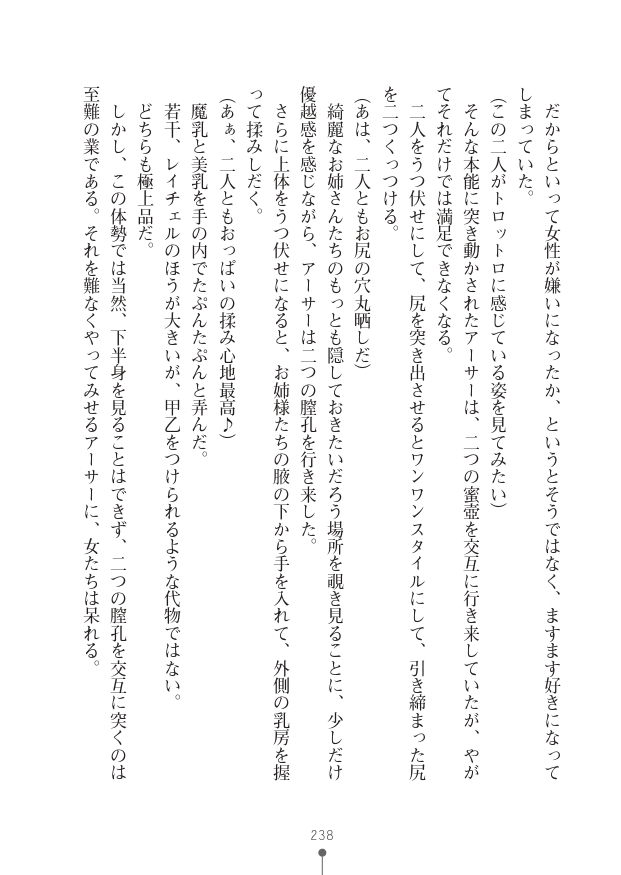 だからといって女性が嫌いになったか、というとそうではなく、ますます好きになって
しまっていた。
(この二人がトロットロに感じている姿を見てみたい)
そんな本能に突き動かされたアーサーは、二つの蜜壺を交互に行き来していたが、やが
てそれだけでは満足できなくなる。
二人をうつ伏せにして、尻を突き出させるとワンワンスタイルにして、引き締まった尻
を二つくっつける。
(あは、二人ともお尻の穴丸晒しだ)
綺麗なお姉さんたちのもっとも隠しておきたいだろう場所を覗き見ることに、少しだけ
優越感を感じながら、アーサーは二つの膣孔を行き来した。
さらに上体をうつ伏せになると、お姉様たちの腋の下から手を入れて、外側の乳房を握
って揉みしだく。
(あぁ、二人ともおっぱいの揉み心地最高♪)
魔乳と美乳を手の内でたぷんたぷんと弄んだ。
若干、レイチェルのほうが大きいが、甲乙をつけられるような代物ではない。
どちらも極上品だ。
しかし、この体勢では当然、下半身を見ることはできず、二つの膣孔を交互に突くのは
至難の業である。それを難なくやってみせるアーサーに、女たちは呆れる。
238